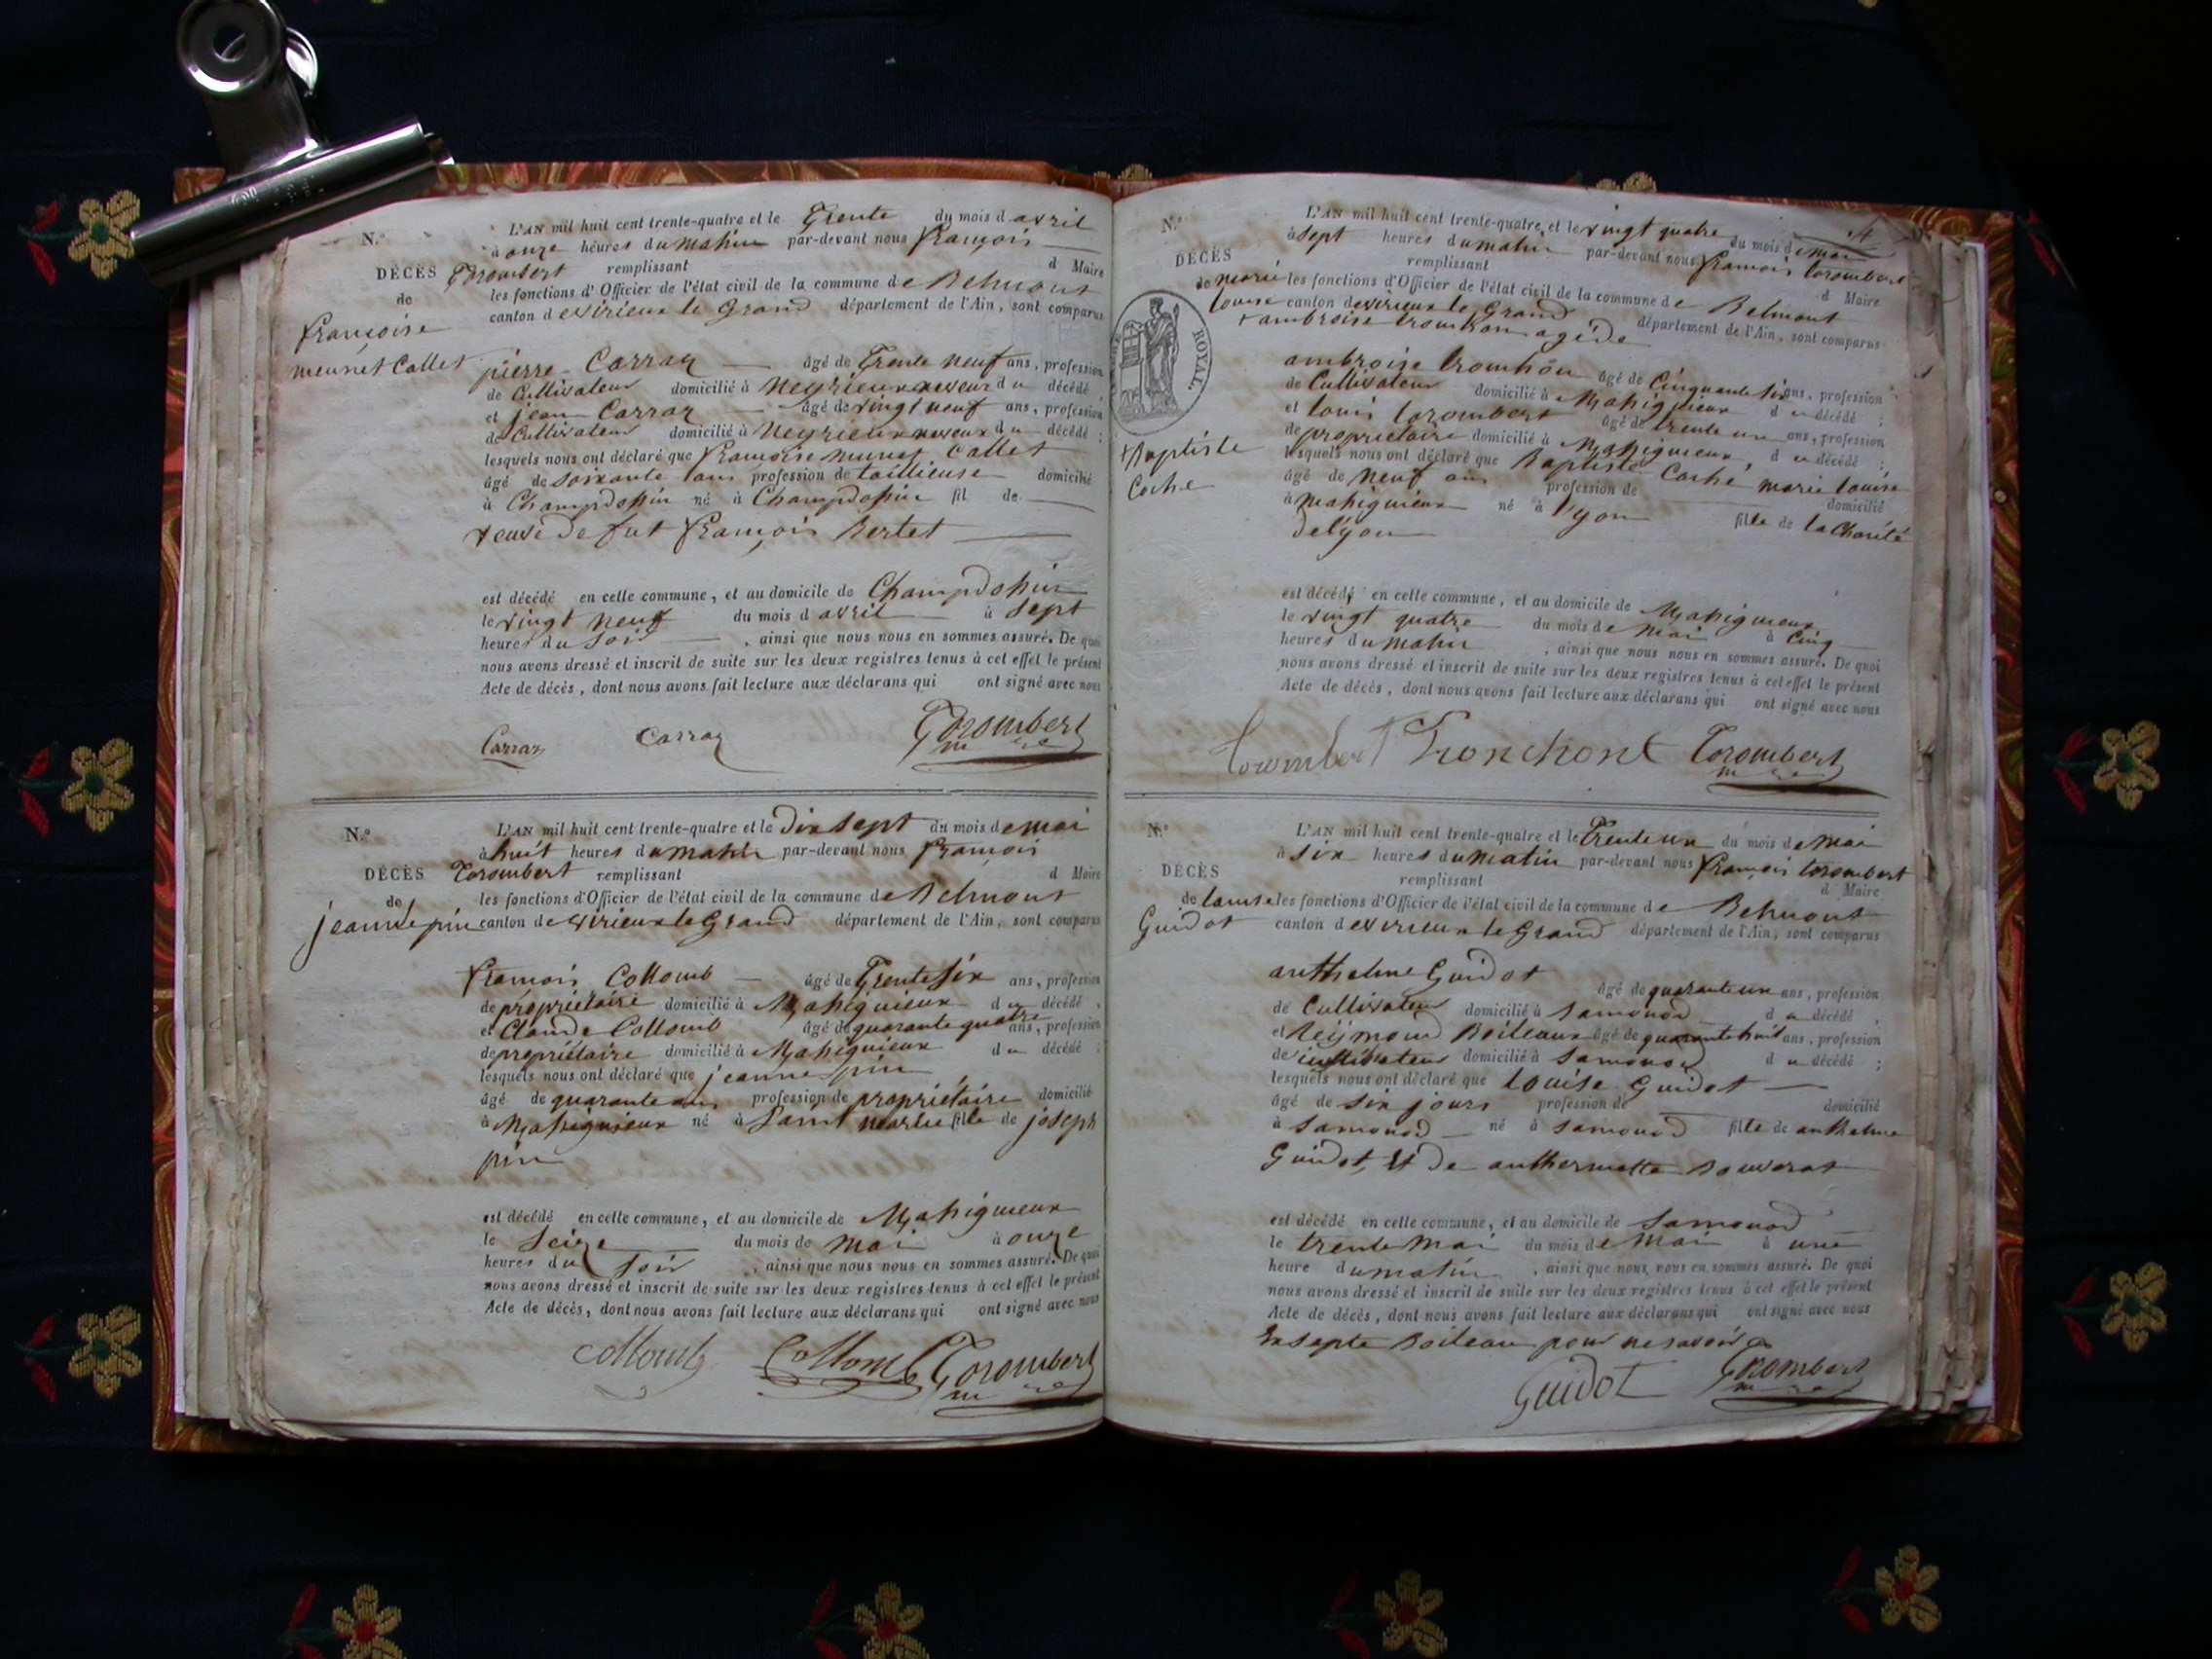 N.º
DÉCÈS
de
françoise
meunet Callet
L'AN mil huit cent trente-quatre et le Trente du mois d avril
à onze heures du matin par-devant nous françois
Torombert remplissant d Maire
les fonctions d'Officier de l'état civil de la commune de Belmont
canton de virieux le Grand département de l'Ain, sont comparus
pierre Carraz âgé de Trente neuf ans, profession
de Cultivateur domicilié à Neyrieux neveux du décédé,
et jean Carraz âgé de vingt neuf ans, profession
de Cultivateur domicilié à Neyrieux neveux du décédé;
lesquels nous ont déclaré que françoise munet Callet
âgé de soixante ans profession de taillieuse domicilié
à Champdossin né à Champdossin fil de
veuve de fut françois Bertet
est décédé en cette commune, et au domicile de Champdossin
le vingt neuf du mois d avril à sept
heures du soir, ainsi que nous nous en sommes assuré. De quoi
nous avons dressé et inscrit de suite sur les deux registres tenus à cet effet le présent
Acte de décès, dont nous avons fait lecture aux déclarans qui ont signé avec nous
Carraz Carraz Torombert
N.º
DÉCÈS
de
jeanne pin
L'AN mil huit cent trente-quatre et le dix sept du mois de mai
à huit heures du matin par-devant nous françois
Torombert remplissant d Maire
les fonctions d'Officier de l'état civil de la commune de Belmont
canton de virieux le Grand département de l'Ain, sont comparus
françois Collomb âgé de Trente six ans, profession
de propriétaire domicilié à Massignieux du décédé,
et Claude Collomb âgé de quarante quatre ans, profession
de propriétaire domicilié à Massignieux du décédé;
lesquels nous ont déclaré que jeanne pin
âgé de quarante ans profession de propriétaire domicilié
à Massignieux né à Saint martin fille de joseph
pin
est décédé en cette commune, et au domicile de Massignieux
le Seize du mois de mai à onze
heures du soir, ainsi que nous nous en sommes assuré. De quoi
nous avons dressé et inscrit de suite sur les deux registres tenus à cet effet le présent
Acte de décès, dont nous avons fait lecture aux déclarans qui ont signé avec nous
Collomb Collomb Torombert
N.º
DÉCÈS
de marie
louise
ROYAL.
Baptiste
Coche
L'AN mil huit cent trente-quatre et le vingt quatre du mois de mai
à sept heures du matin par-devant nous françois torombert
remplissant d Maire
les fonctions d'Officier de l'état civil de la commune de Belmont
canton de virieux le Grand département de l'Ain, sont comparus
ambroise tronchon agé de
ambroise tronchon âgé de Cinquante six ans, profession
de Cultivateur domicilié à Massignieux du décédé;
et louis torombert âgé de trente un ans, profession
de proprietaire domicilié à Massignieux, du décédé;
lesquels nous ont déclaré que Baptiste Coche marie louise
âgé de neuf ans profession de domicilié
à massignieux né à lyon fille de la Charité
de lyon
est décédé en cette commune, et au domicile de Massignieux
le vingt quatre du mois de mai à Cinq
heures du matin, ainsi que nous nous en sommes assuré. De quoi
nous avons dressé et inscrit de suite sur les deux registres tenus à cet effet le présent
Acte de décès, dont nous avons fait lecture aux déclarans qui ont signé avec nous
torombert Tronchont Torombert
N.º
DÉCÈS
de louise
Guidot
L'AN mil huit cent trente-quatre et le Trente un du mois de mai
à six heures du matin par-devant nous françois torombert
remplissant d Maire
les fonctions d'Officier de l'état civil de la commune de Belmont
canton de virieux le Grand département de l'Ain, sont comparus
anthelme Guidot âgé de quarante un ans, profession
de Cultivateur domicilié à samonod du décédé,
et Reymond Boileaux âgé de quarante huit ans, profession
de cultivateur domicilié à samonod du décédé;
lesquels nous ont déclaré que louise Guidot
âgé de six jours profession de domicilié
à samonod né à samonod fille de anthelme
Guidot, Et de anthermette
est décédé en cette commune, et au domicile de samonod
le trente mai du mois de mai à une
heure du matin, ainsi que nous nous en sommes assuré. De quoi
nous avons dressé et inscrit de suite sur les deux registres tenus à cet effet le présent
Acte de décès, dont nous avons fait lecture aux déclarans qui ont signé avec nous
Exsepte Boileau pour ne savoir
Guidot Torombert